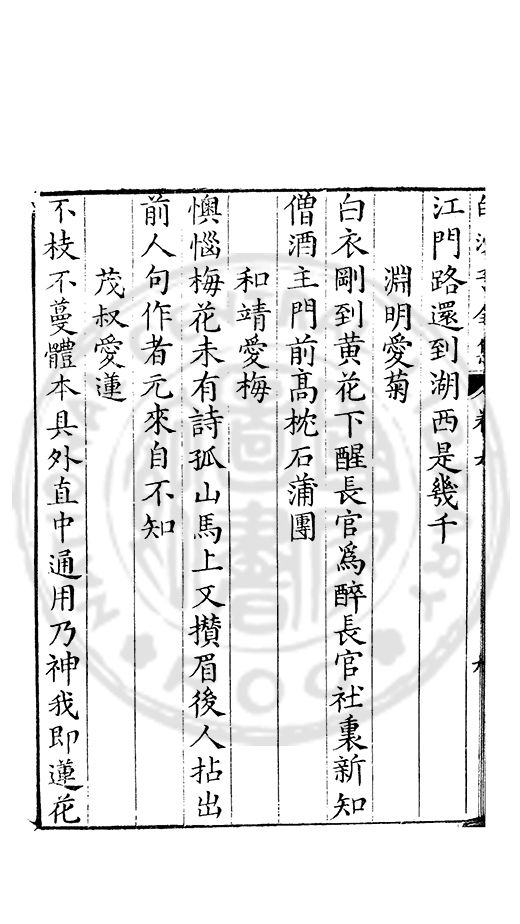 江門路還到湖西是幾千
淵明愛菊
白衣剛到黃花下醒長官爲醉長官社裏新知
僧酒主門前高枕石蒲團
和靖愛梅
懊惱梅花未有詩孤山馬上又攢眉後人拈出
前人句作者元來自不知
茂叔愛蓮
不枝不蔓體本具外直中通用乃神我即蓮花